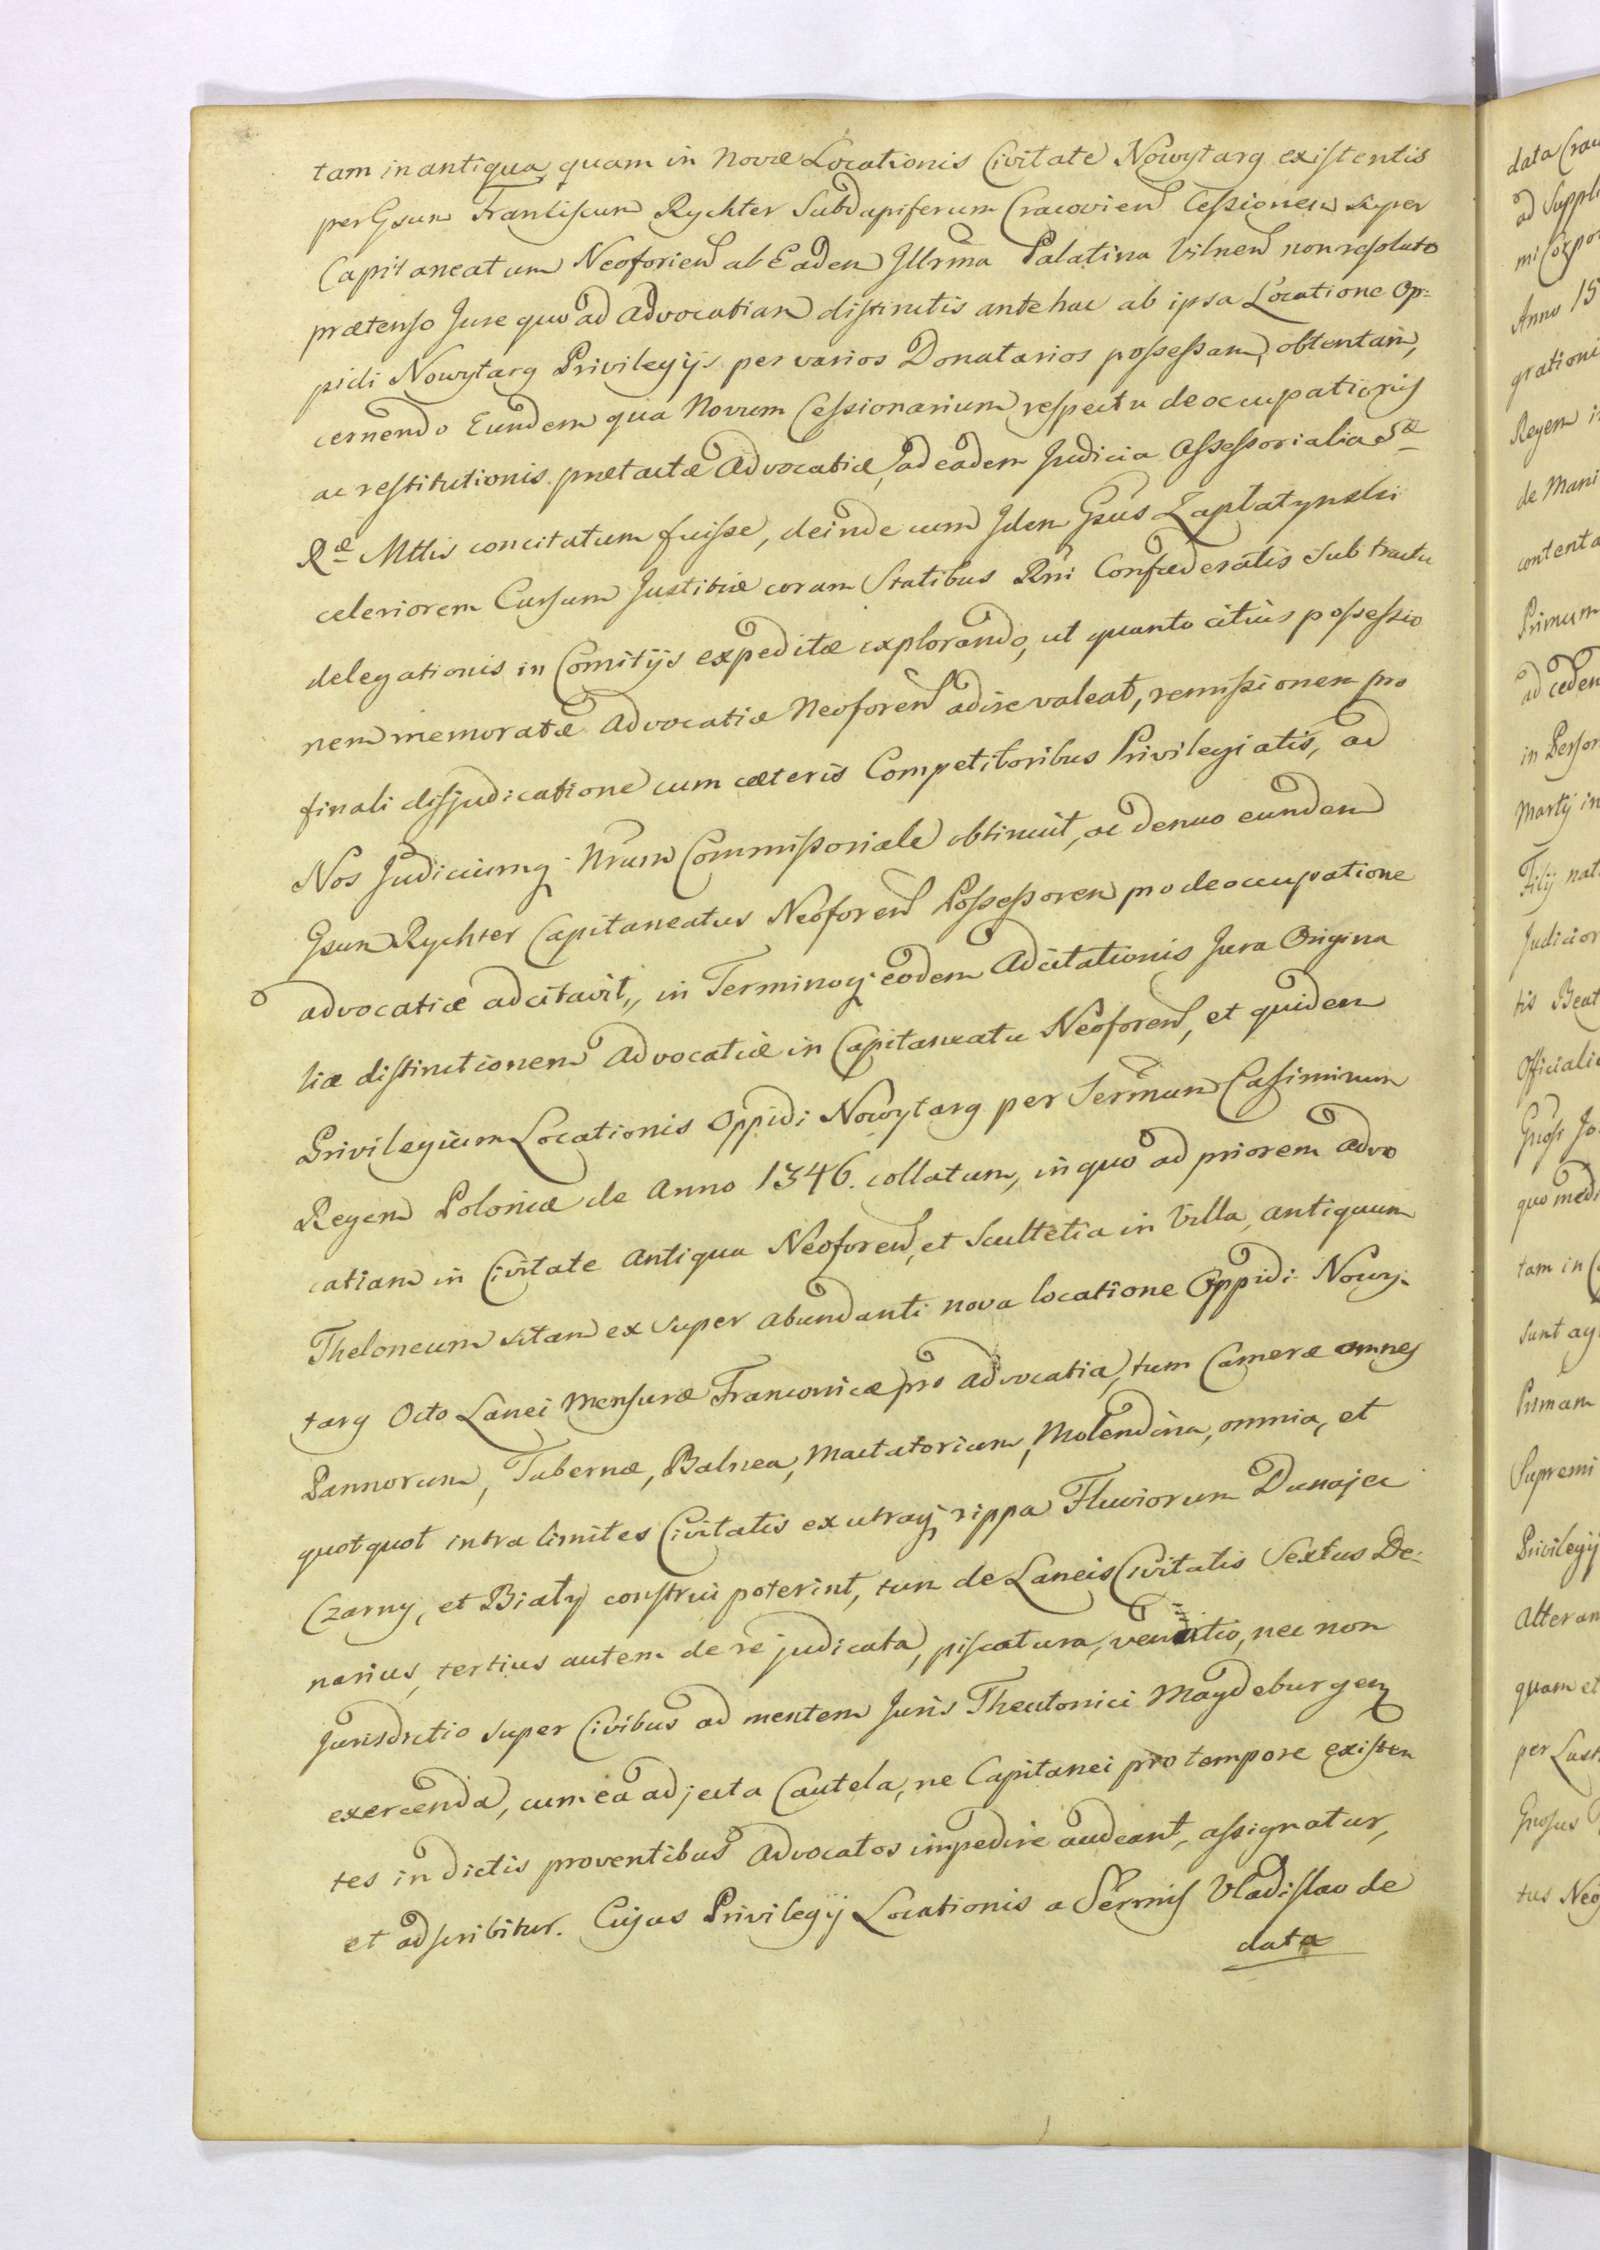 tam in antiqua, quam in Novæ Locationis Civitate Nowytarg existentis
per Gsum Franciscum Rychter Subdapiferum Cracovien Cessionem super
Capitaneatum Neoforien ab Eadem Illrma Palatina Vilnen non resoluto
prætenso Jure quoad Advocatiam distinctis antehac ab ipsa Locatione Op:
pidi Nowytarg Privilegijs per varios Donatarios possessam, obtentam,
cernendo Eundem qua Novum Cessionarium respectu deoccupationis
ac restitutionis prætactæ Advocatiæ, ad eadem Judicia Assessorialia Sæ
Ræ Mttis concitatum fuisse, deinde cum Idem Gsus Zapłatynski
celeriorem Cursum Justitiæ coram Statibus Rni Confæderatis sub tractu
delegationis in Comitijs expeditæ explorando, ut quanto citius possessio
nem memoratæ Advocatiæ Neoforen adire valeat, remissionem pro
finali disjudicatione cum cæteris Competitoribus Privilegiatis, ad
Nos Judiciumq; Nrum Commissoriale obtinuit, ac denuo eundem
Gsum Rychter Capitaneatus Neoforen Possessorem pro deoccupatione
advocatiæ adcitavit, in Terminoq; eodem Adcitationis Jura Origina
lia distinctionem Advocatiæ in Capitaneatu Neoforen, et quidem
Privilegium Locationis Oppidi Nowytarg per Sermum Casimirum
Regem Poloniæ de Anno 1346. collatum, in quo ad priorem Advo
catiam in Civitate Antiqua Neoforen, et Scultetia in Villa, antiquum
Theloneum sitam ex super abundanti nova locatione Oppidi Nowy-
targ Octo Lanei Mensuræ Franconicæ pro Advocatia, tum Cameræ omnes
Pannorum, Tabernæ, Balnea, Mactatorium, Molendina, omnia, et
quotquot intra limites Civitatis ex utraq; rippa Fluviorum Dunajec
Czarny, et Biały construi poterint, tum de Laneis Civitatis Sextus De:
narius, tertius autem de re judicata, piscatura, venatio, nec non
Jurisdictio super Civibus ad mentem Juris Theutonici Magdeburgen
exercenda, cum ea adjecta Cautela, ne Capitanei pro tempore existen
tes in dictis proventibus Advocatos impedire audeant, assignatur,
et adscribitur. Cujus Privilegij Locationis a Sermis Vladislao de
data